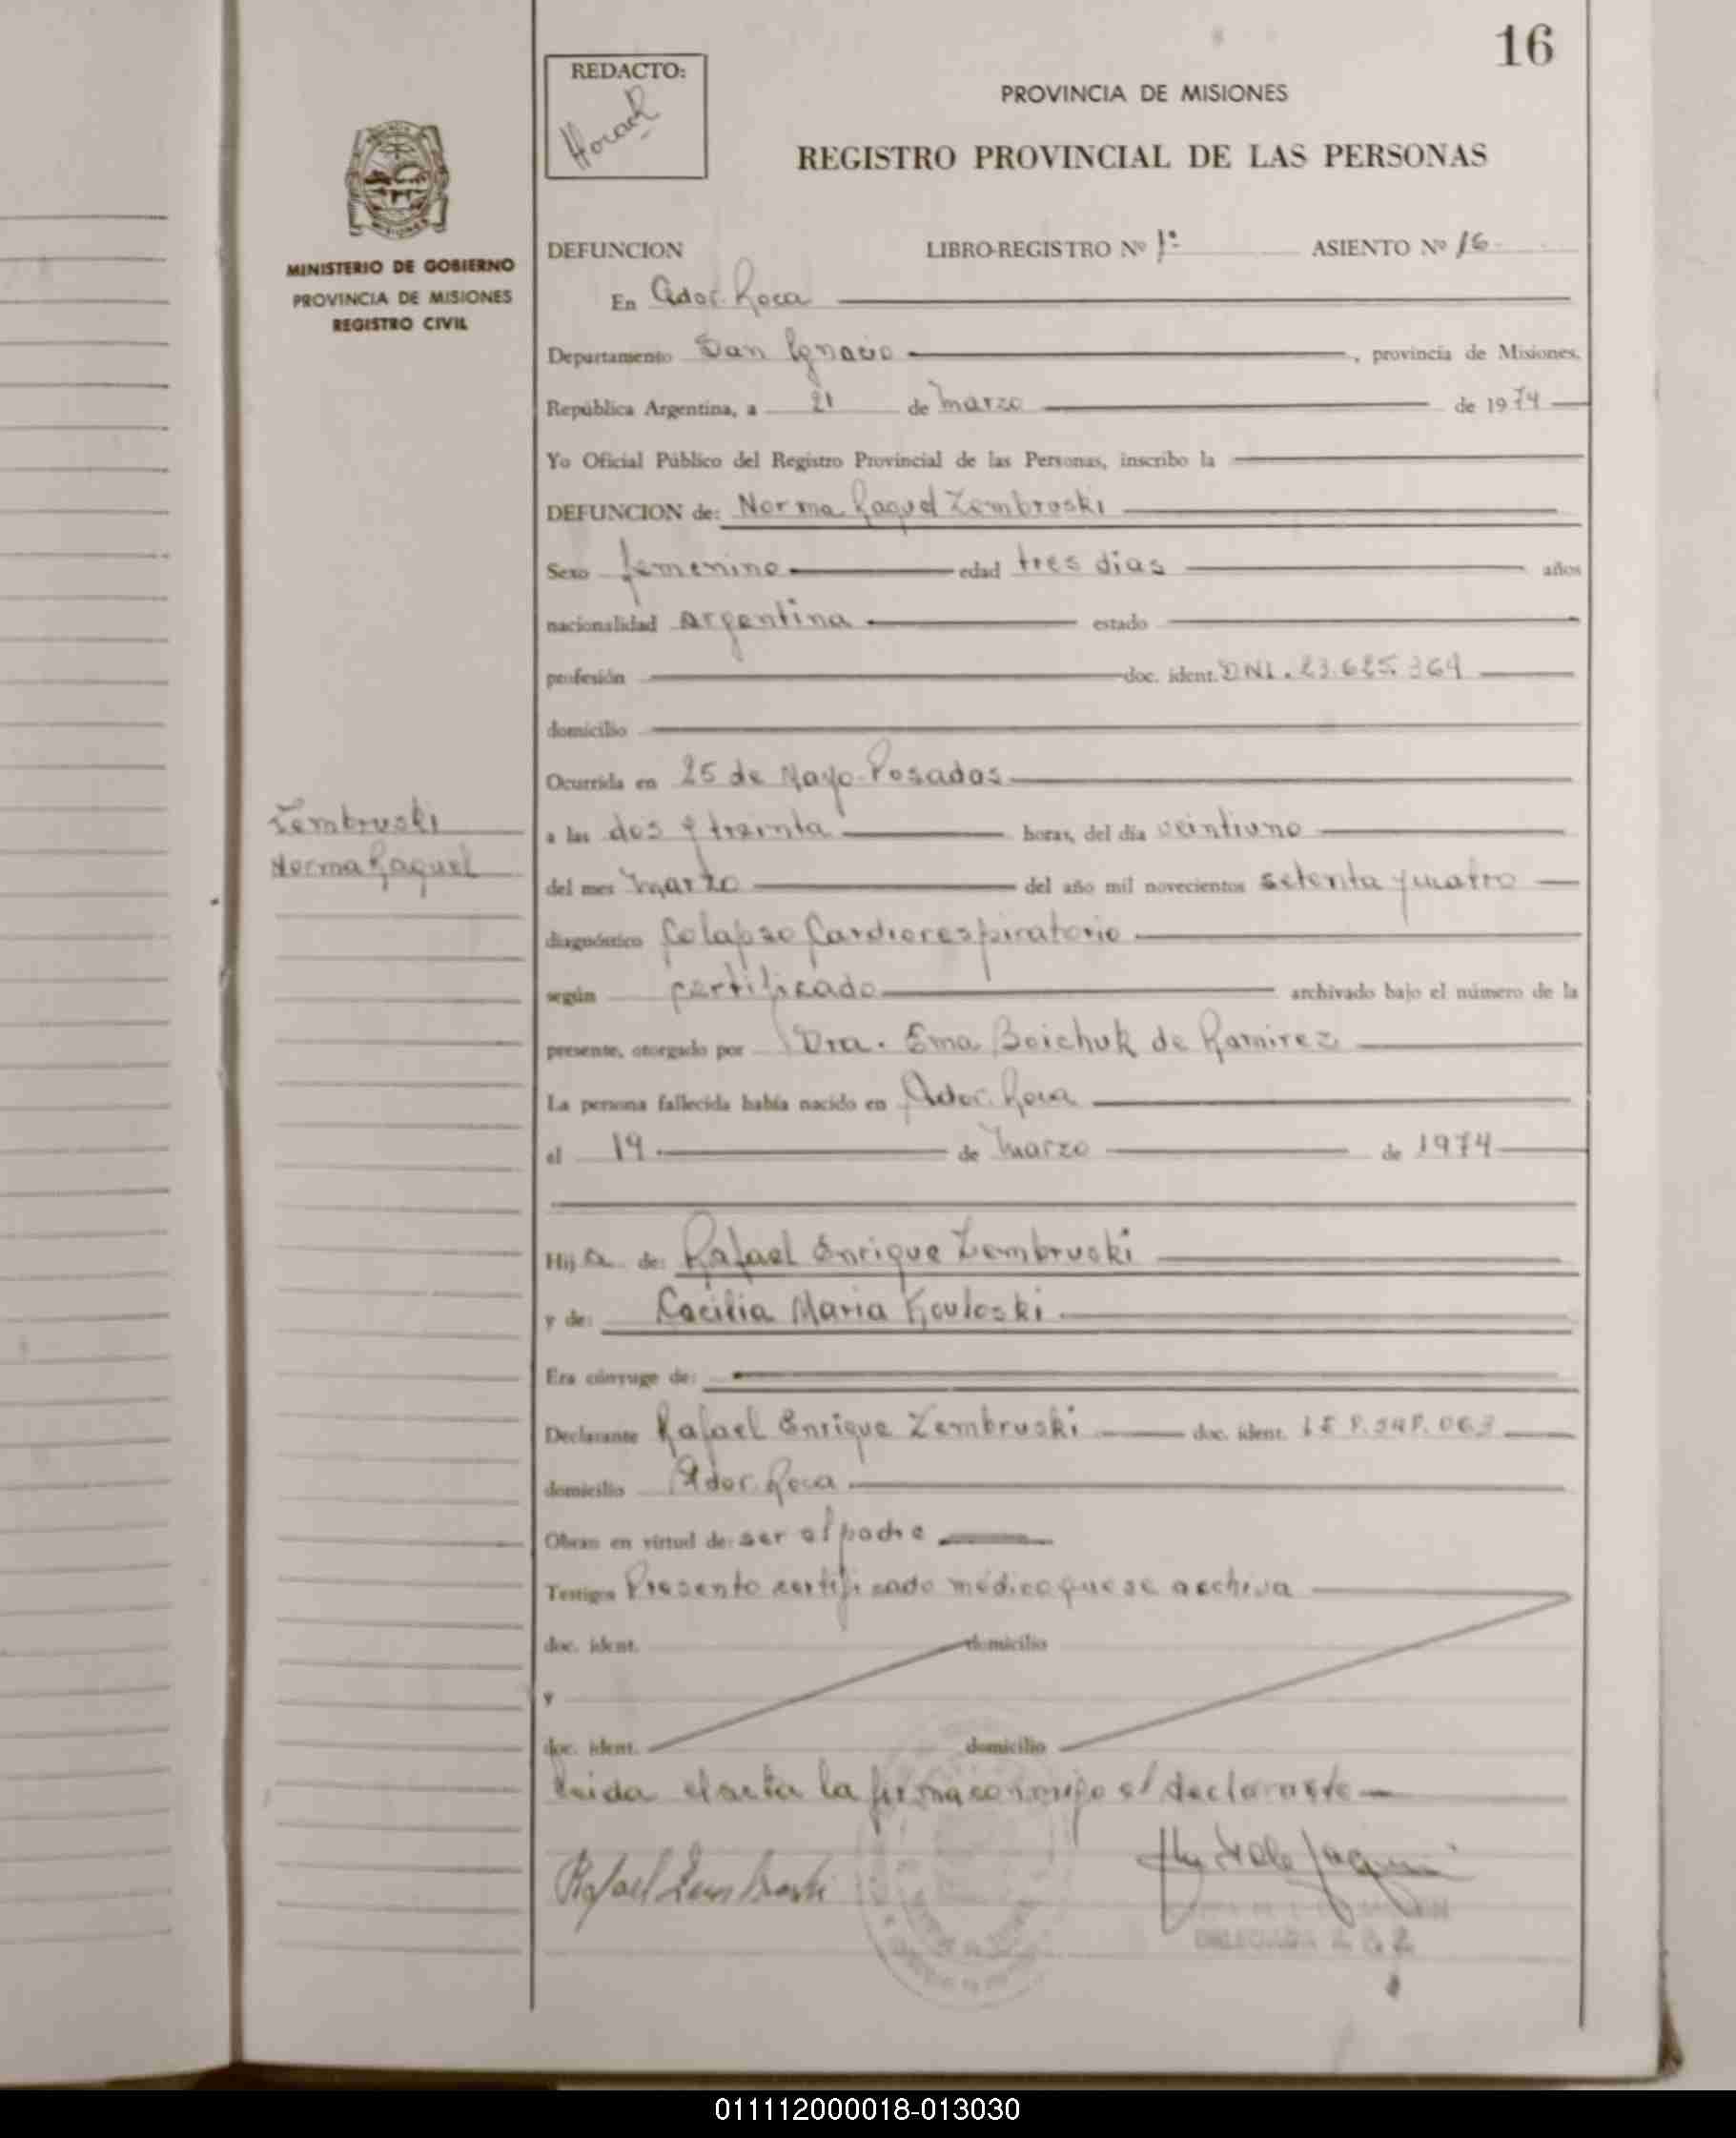 16
REDACTO:
PROVINCIA DE MISIONES
REGISTRO PROVINCIAL DE LAS PERSONAS
MINISTERIO DE GOBIERNO
PROVINCIA DE MISIONES
REGISTRO CIVIL
DEFUNCION LIBRO-REGISTRO Nº 1º ASIENTO Nº 16
En Gdor. Roca
Departamento San Ignacio, provincia de Misiones,
República Argentina, a 21 de marzo de 1974
Yo Oficial Público del Registro Provincial de las Personas, inscribo la
DEFUNCION de: Norma Raquel Zembruski
Sexo femenino edad tres dias años
nacionalidad argentina estado
profesión doc. ident. DNI. 23.625.369
domicilio
Ocurrida en 25 de Mayo-Posadas
Zembruski
Norma Raquel
a las dos y treinta horas, del día veintiuno
del mes marzo del año mil novecientos setenta y cuatro
diagnóstico Colapso Cardiorespiratorio
según certificado archivado bajo el número de la
presente, otorgado por Dra. Ema Boichuk de Ramirez
La persona fallecida había nacido en Gdor. Roca
el 19 de marzo de 1974
Hija de: Rafael Enrique Zembruski
y de: Cecilia Maria Kouloski
Era cónyuge de:
Declarante Rafael Enrique Zembruski doc. ident.
domicilio Gdor. Roca
Obran en virtud de: ser el padre
Testigos Presento certificado médico que se archiva
doc. ident. domicilio
y
doc. ident. domicilio
Leida el acta la firma conmigo el declarante
Rafael Zembruski
011112000018-013030